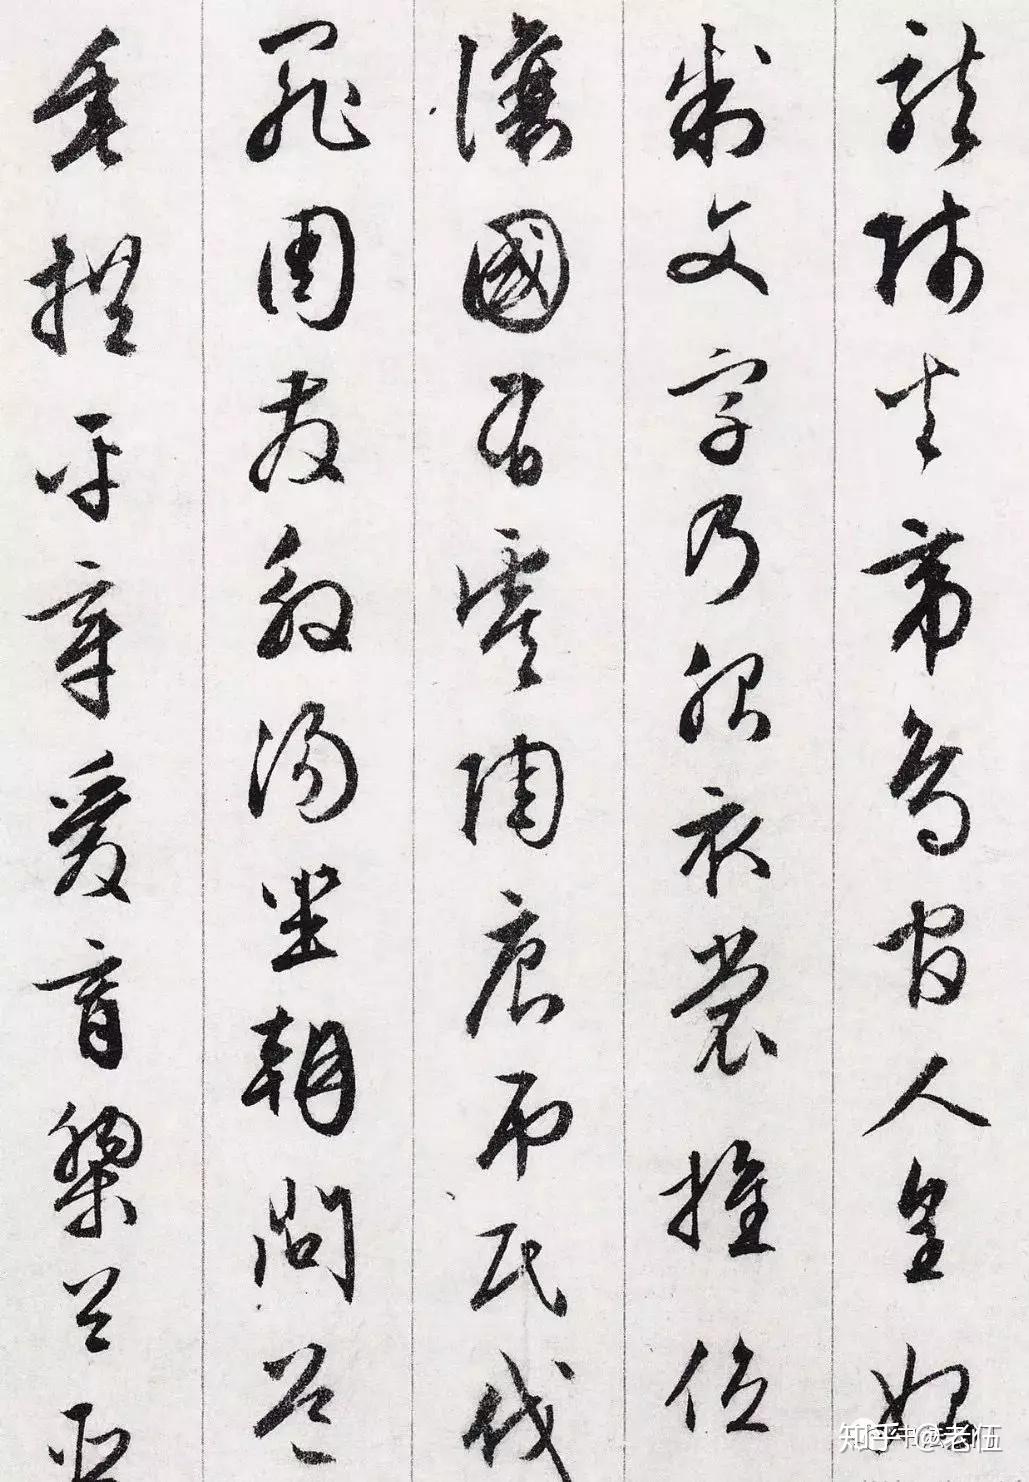 龍師火帝鳥官人皇始
制文字乃服衣裳推位
讓國有虞陶唐弔民伐
罪周發殷湯坐朝問道
垂拱平章愛育黎首臣
知乎 @老伍